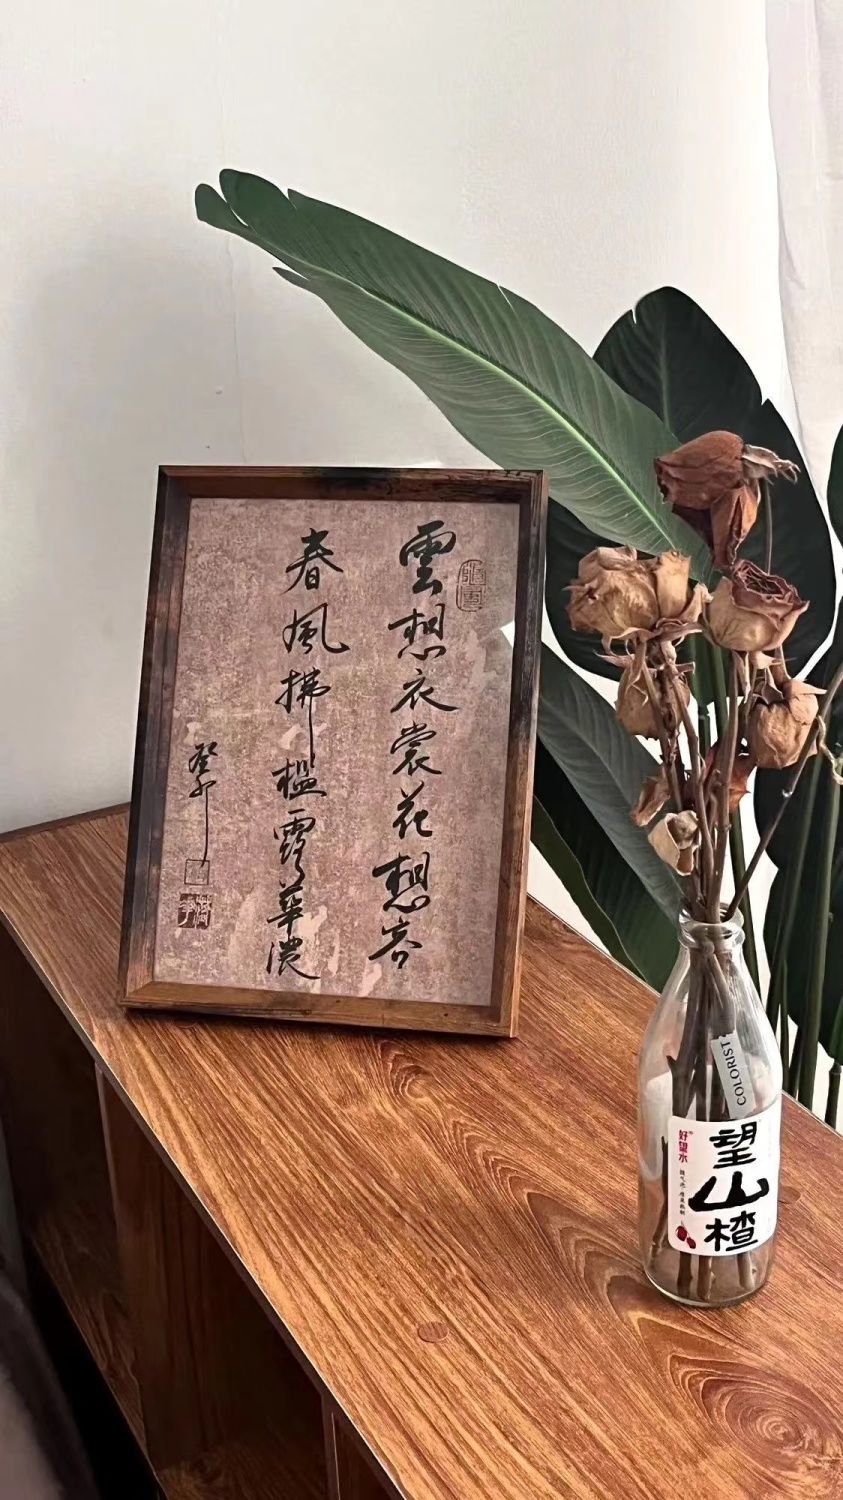 雲想衣裳花想容
春風拂檻露華濃
癸卯
COLORIST
好望水
望山楂